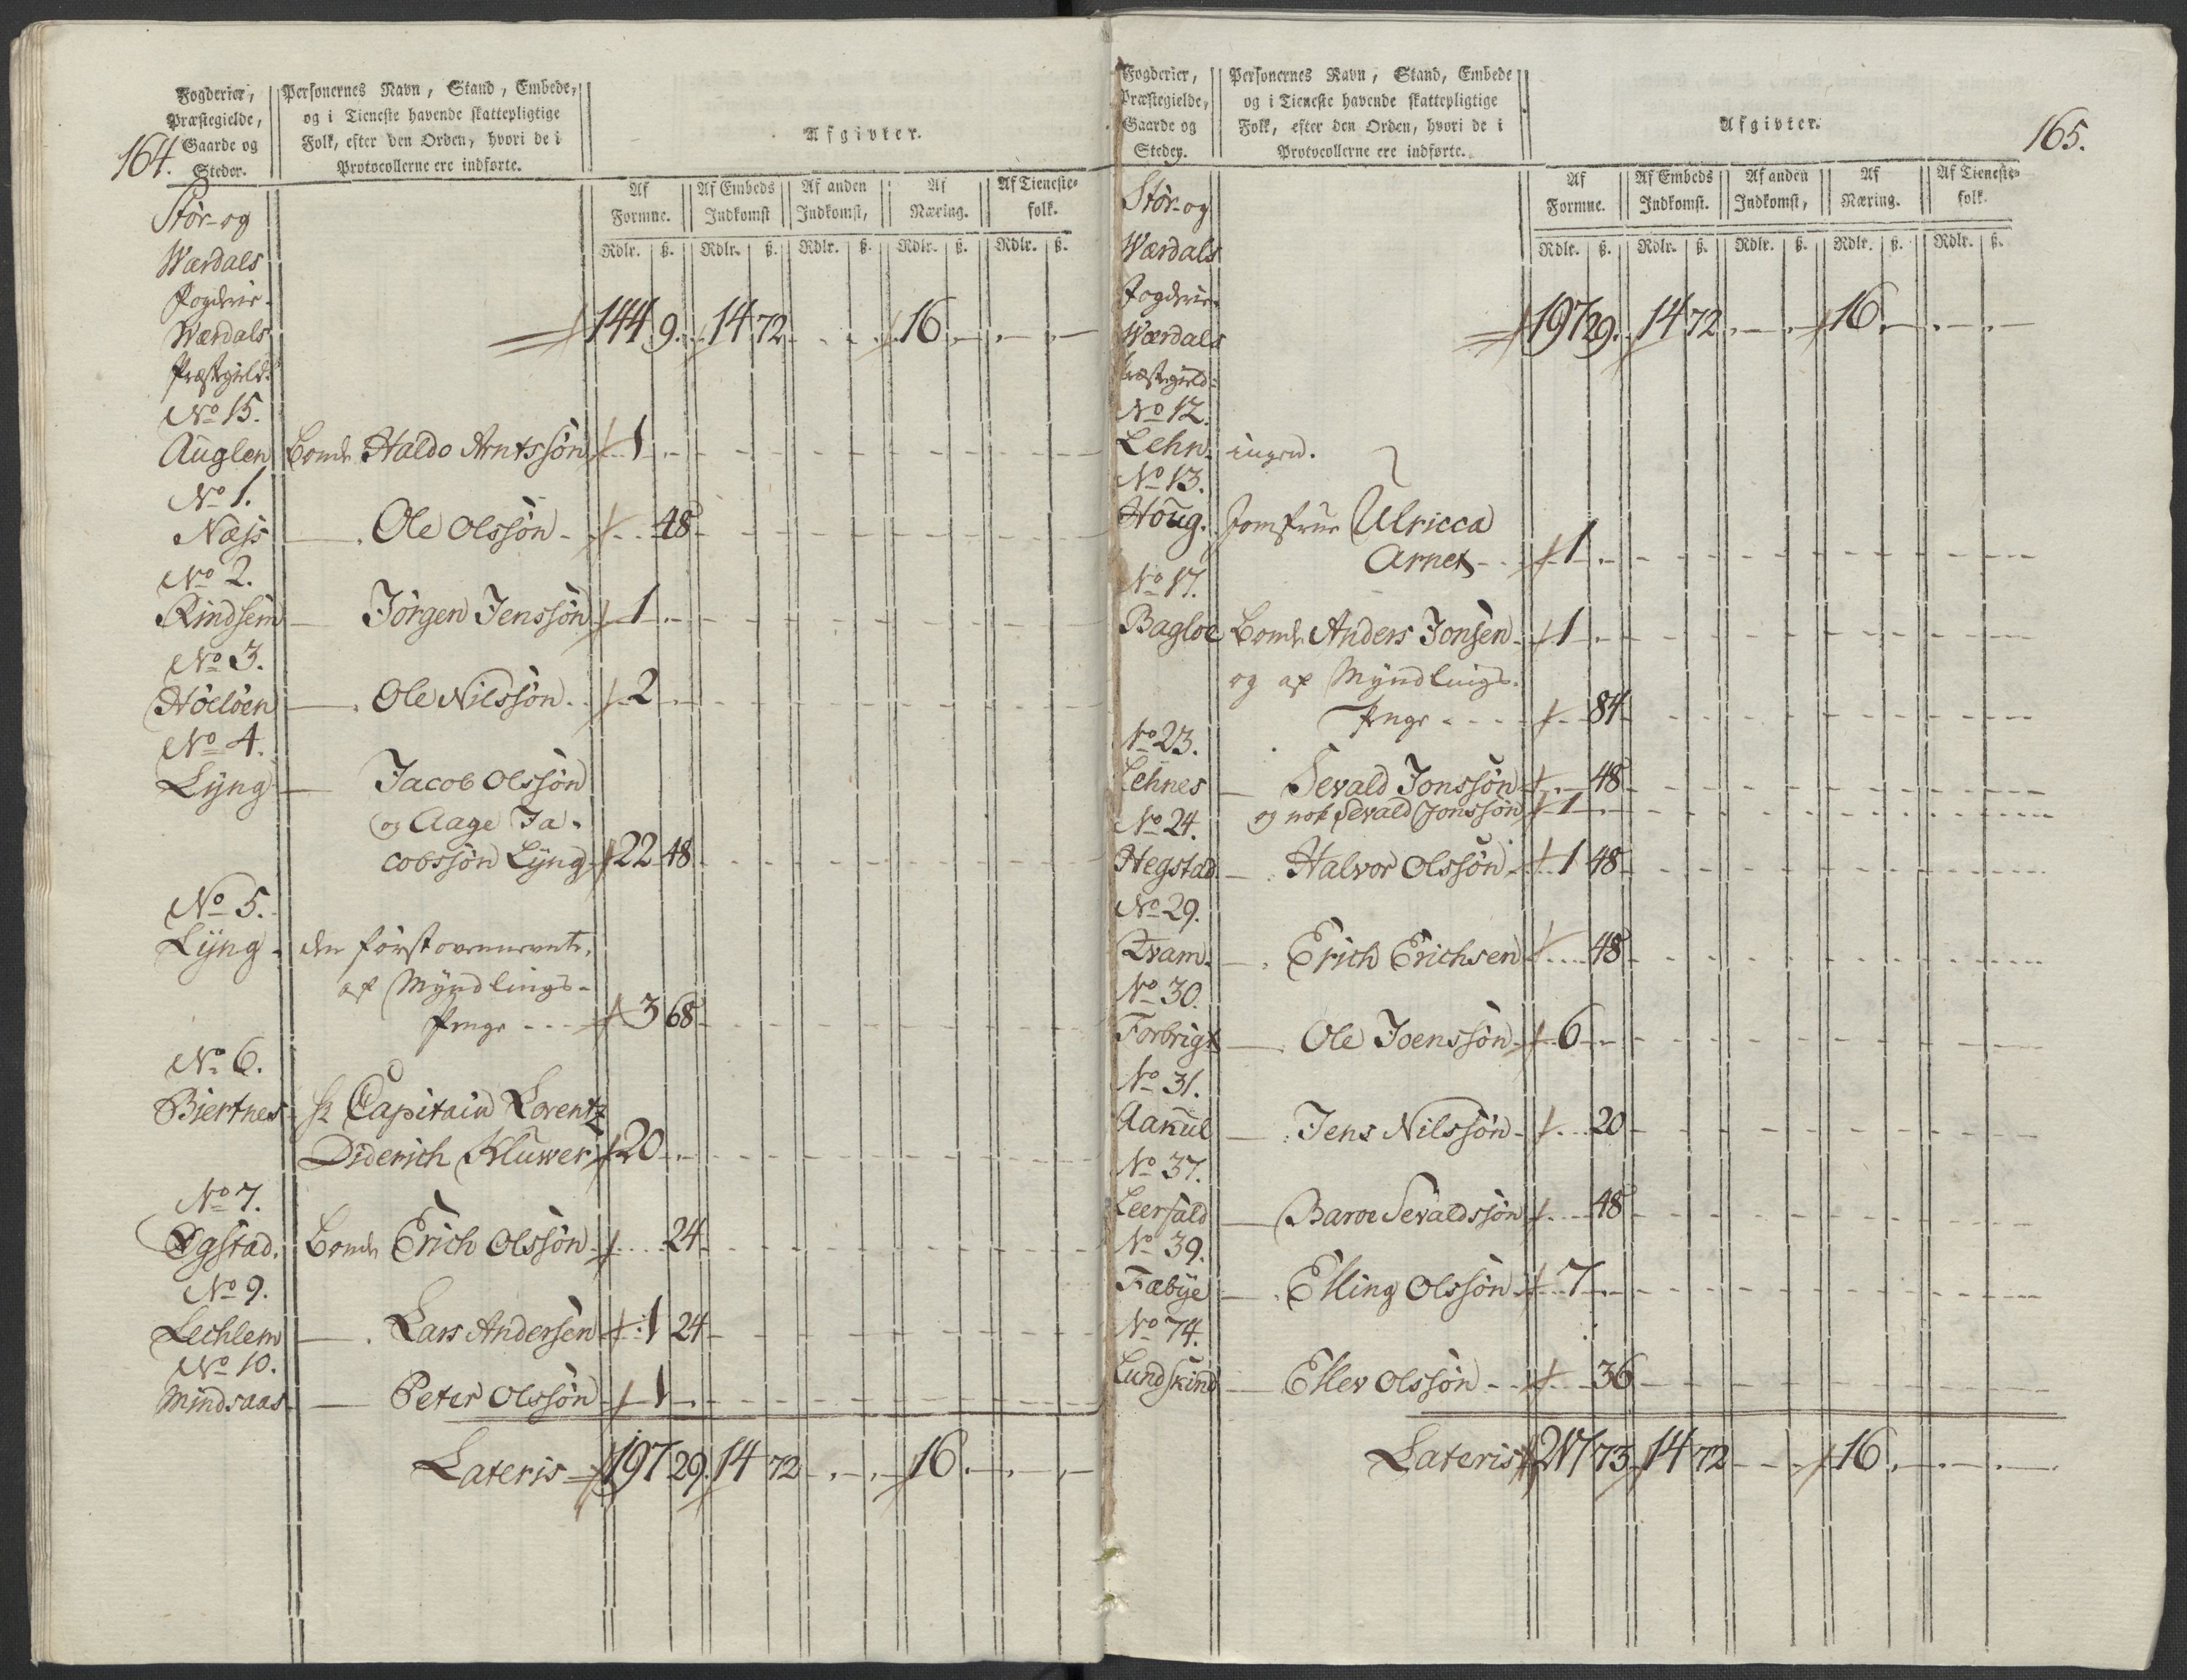 164.
Fogderier,
Præstegielde,
Gaarde og
Steder.
Personernes Navn, Stand, Embede,
og i Tieneste havende skattepligtige
Folk, efter den Orden, hvori de i
Protocollerne ere indførte.
Afgivter.
Af Formue. Af Embeds Indkomst Af anden Indkomst, Af Næring. Af Tienestefolk.
Rdlr. ß. Rdlr. ß. Rdlr. ß. Rdlr. ß. Rdlr. ß.
Stør- og
Wærdals
Fogderie.
Wærdals 144 9. 14 72 16
Præstegield:
No 15.
Auglen Bonde Haldo Arntssøn 1
No 1.
Næss — Ole Olssøn 48
No 2.
Rindsem — Jørgen Jenssøn 1
No 3.
Höelöen — Ole Nilssøn 2
No 4.
Lÿng — Jacob Olssøn
og Aage Ja-
cobssøn Lÿng 22 48
No 5.
Lÿng - den først ovennevnte,
af Mÿndlings-
Penge 3 68
No 6.
Biertnes Hr Capitain Lorentz
Diderich Kluwer 20
No 7.
Øgstad. Bonde Erich Olssøn 24
No 9.
Lechlem — Lars Andersen 1 24
No 10.
Mindsaas — Peter Olssøn 1
Lateris 197 29. 14 72 16
165.
Fogderier,
Præstegielde,
Gaarde og
Steder.
Personernes Navn, Stand, Embede
og i Tieneste havende skattepligtige
Folk, efter den Orden, hvori de i
Protocollerne ere indførte.
Afgivter.
Af Formue. Af Embeds Indkomst. Af anden Indkomst, Af Næring. Af Tienestefolk.
Rdlr. ß. Rdlr. ß. Rdlr. ß. Rdlr. ß. Rdlr. ß.
Stör- og
Wærdals
Fogderie.
Wærdals 197 29. 14 72 16
Præstegield:
No 12.
Lehn. ingen.
No 13.
Houg. Jomfrue Ulricca
Arnet 1
No 17.
Bagloe Bonde Anders Jonsen 1
og af Mÿndlings-
Penge 84
No 23.
Lehnes — Sevald Jonssøn 48
og nok Sevald Jonssøn 1
No 24.
Hegstad — Halvor Olssøn 1 48
No 29.
Qvam — Erich Erichsen 48
No 30.
Forbrigt — Ole Joenssøn 6
No 31.
Aakul — Jens Nilssøn 20
No 37.
Leersald — Baroe Sevaldssøn 48
No 39.
Fæbÿe — Elling Olssøn 7
No 74.
Lundskind — Ellev Olssøn 36
Lateris 217 73 14 72 16